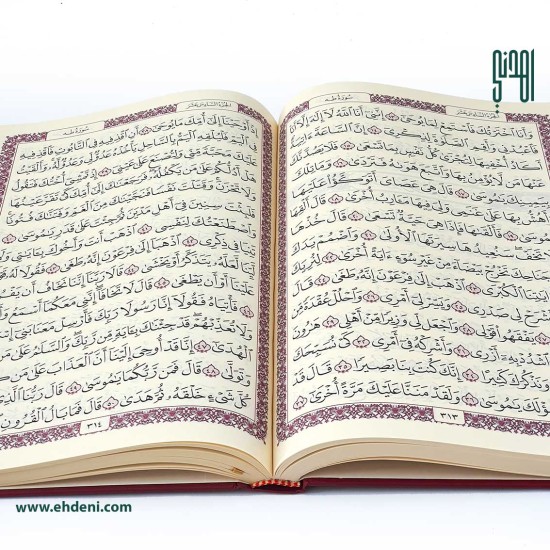 اهدني
سُورَةُ طه
الجُزْءُ السَّادِسَ عَشَرَ
وَأَنَا ٱخْتَرْتُكَ فَٱسْتَمِعْ لِمَا يُوحَىٰٓ ١٣ إِنَّنِىٓ أَنَا ٱللَّهُ لَآ إِلَٰهَ إِلَّآ أَنَا۠
فَٱعْبُدْنِى وَأَقِمِ ٱلصَّلَوٰةَ لِذِكْرِىٓ ١٤ إِنَّ ٱلسَّاعَةَ ءَاتِيَةٌ
أَكَادُ أُخْفِيهَا لِتُجْزَىٰ كُلُّ نَفْسٍۭ بِمَا تَسْعَىٰ ١٥ فَلَا يَصُدَّنَّكَ
عَنْهَا مَن لَّا يُؤْمِنُ بِهَا وَٱتَّبَعَ هَوَىٰهُ فَتَرْدَىٰ ١٦ وَمَا تِلْكَ
بِيَمِينِكَ يَٰمُوسَىٰ ١٧ قَالَ هِىَ عَصَاىَ أَتَوَكَّؤُا۟ عَلَيْهَا
وَأَهُشُّ بِهَا عَلَىٰ غَنَمِى وَلِىَ فِيهَا مَـَٔارِبُ أُخْرَىٰ ١٨ قَالَ أَلْقِهَا
يَٰمُوسَىٰ ١٩ فَأَلْقَىٰهَا فَإِذَا هِىَ حَيَّةٌ تَسْعَىٰ ٢٠ قَالَ خُذْهَا
وَلَا تَخَفْ سَنُعِيدُهَا سِيرَتَهَا ٱلْأُولَىٰ ٢١ وَٱضْمُمْ يَدَكَ
جَنَاحِكَ تَخْرُجْ بَيْضَآءَ مِنْ غَيْرِ سُوٓءٍ ءَايَةً أُخْرَىٰ ٢٢ لِنُرِيَكَ
ءَايَٰتِنَا ٱلْكُبْرَى ٢٣ ٱذْهَبْ إِلَىٰ فِرْعَوْنَ إِنَّهُۥ طَغَىٰ ٢٤ قَالَ
ٱشْرَحْ لِى صَدْرِى ٢٥ وَيَسِّرْ لِىٓ أَمْرِى ٢٦ وَٱحْلُلْ عُقْدَةً مِّن
يَفْقَهُوا۟ قَوْلِى ٢٨ وَٱجْعَل لِّى وَزِيرًا مِّنْ أَهْلِى ٢٩ هَٰرُونَ
ٱشْدُدْ بِهِۦٓ أَزْرِى ٣١ وَأَشْرِكْهُ فِىٓ أَمْرِى ٣٢ كَىْ نُسَبِّحَكَ
وَنَذْكُرَكَ كَثِيرًا ٣٤ إِنَّكَ كُنتَ بِنَا بَصِيرًا ٣٥ قَالَ
سُؤْلَكَ يَٰمُوسَىٰ ٣٦ وَلَقَدْ مَنَنَّا عَلَيْكَ مَرَّةً أُخْرَىٰٓ ٣٧
٣١٣
الجُزْءُ السَّادِسَ عَشَرَ
سُورَةُ طه
إِذْ أَوْحَيْنَآ إِلَىٰٓ أُمِّكَ مَا يُوحَىٰٓ ٣٨ أَنِ ٱقْذِفِيهِ فِى ٱلتَّابُوتِ فَٱقْذِفِيهِ
فِى ٱلْيَمِّ فَلْيُلْقِهِ ٱلْيَمُّ بِٱلسَّاحِلِ يَأْخُذْهُ عَدُوٌّ لِّى وَعَدُوٌّ لَّهُۥ وَأَلْقَيْتُ
عَلَيْكَ مَحَبَّةً مِّنِّى وَلِتُصْنَعَ عَلَىٰ عَيْنِىٓ ٣٩ إِذْ تَمْشِىٓ أُخْتُكَ فَتَقُولُ
هَلْ أَدُلُّكُمْ عَلَىٰ مَن يَكْفُلُهُۥ فَرَجَعْنَٰكَ إِلَىٰٓ أُمِّكَ كَىْ تَقَرَّ عَيْنُهَا
وَلَا تَحْزَنَ وَقَتَلْتَ نَفْسًا فَنَجَّيْنَٰكَ مِنَ ٱلْغَمِّ وَفَتَنَّٰكَ فُتُونًا
فَلَبِثْتَ سِنِينَ فِىٓ أَهْلِ مَدْيَنَ ثُمَّ جِئْتَ عَلَىٰ قَدَرٍ يَٰمُوسَىٰ ٤٠
وَٱصْطَنَعْتُكَ لِنَفْسِى ٤١ ٱذْهَبْ أَنتَ وَأَخُوكَ بِـَٔايَٰتِى وَلَا
تَنِيَا فِى ذِكْرِى ٤٢ ٱذْهَبَآ إِلَىٰ فِرْعَوْنَ إِنَّهُۥ طَغَىٰ ٤٣ فَقُولَا لَهُۥ
لَّيِّنًا لَّعَلَّهُۥ يَتَذَكَّرُ أَوْ يَخْشَىٰ ٤٤ قَالَا رَبَّنَآ إِنَّنَا نَخَافُ أَن
عَلَيْنَآ أَوْ أَن يَطْغَىٰ ٤٥ قَالَ لَا تَخَافَآ إِنَّنِى مَعَكُمَآ أَسْمَعُ
٤٦ فَأْتِيَاهُ فَقُولَآ إِنَّا رَسُولَا رَبِّكَ فَأَرْسِلْ مَعَنَا بَنِىٓ
وَلَا تُعَذِّبْهُمْ قَدْ جِئْنَٰكَ بِـَٔايَةٍ مِّن رَّبِّكَ وَٱلسَّلَٰمُ عَلَىٰ مَنِ
ٱلْهُدَىٰٓ ٤٧ إِنَّا قَدْ أُوحِىَ إِلَيْنَآ أَنَّ ٱلْعَذَابَ عَلَىٰ مَن
وَتَوَلَّىٰ ٤٨ قَالَ فَمَن رَّبُّكُمَا يَٰمُوسَىٰ ٤٩ قَالَ رَبُّنَا ٱلَّذِىٓ
كُلَّ شَىْءٍ خَلْقَهُۥ ثُمَّ هَدَىٰ ٥٠ قَالَ فَمَا بَالُ ٱلْقُرُونِ
٣١٤
www.ehdeni.com